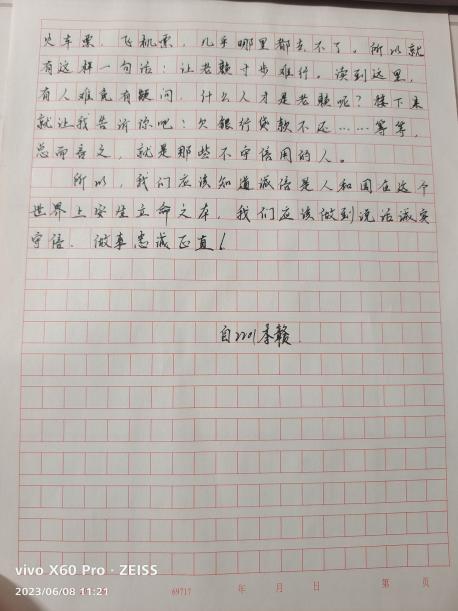 火车票,飞机票,几乎哪里都去不了。所以就
有这样一句话:让老赖寸步难行。读到这里,
有人难免有疑问,什么人才是老赖呢?接下来
就让我告诉你吧:欠银行贷款不还……等等,
总而言之,就是那些不守信用的人。
所以,我们应该知道诚信是人和国在这个
世界上安生立命之本,我们应该做到说话诚实
守信、做事忠诚正直!
自2201李赣
vivo X60 Pro · ZEISS
2023/06/08 11:21
69717 年 月 日 第 页